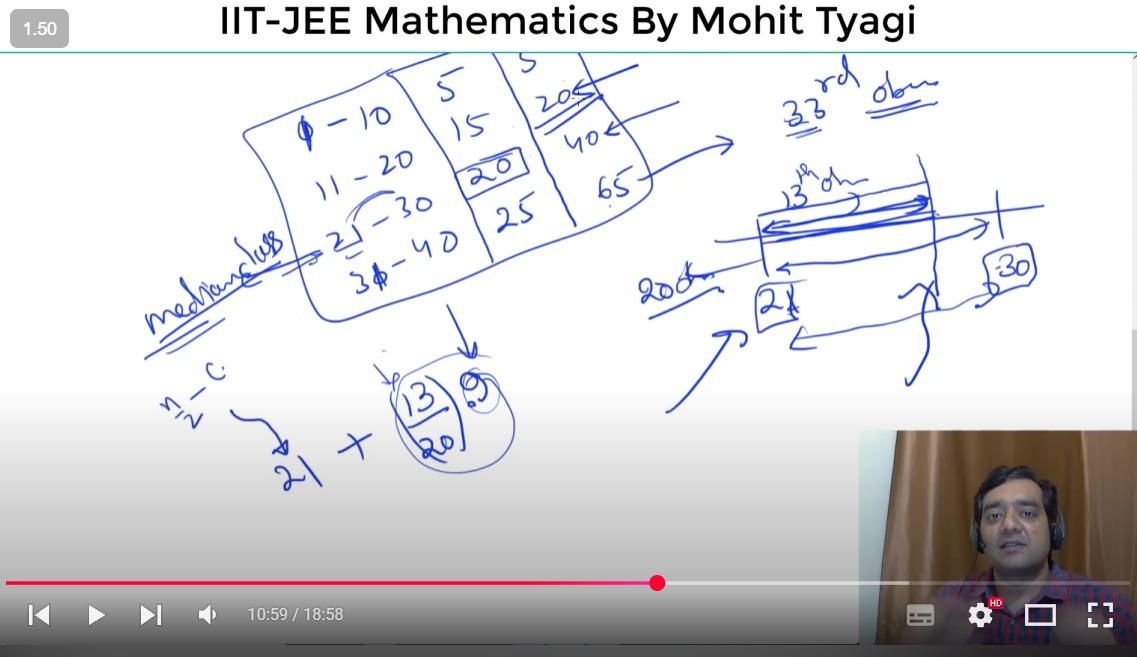 1.50
IIT-JEE Mathematics By Mohit Tyagi
5 5
0 - 10 15 205
11 - 20 20 40
21 - 30 25 65
31 - 40
median class
33rd obsn
13th obsn
20 obsn
21 30
n/2 - C
21 + (13/20) 9
10:59 / 18:58
HD